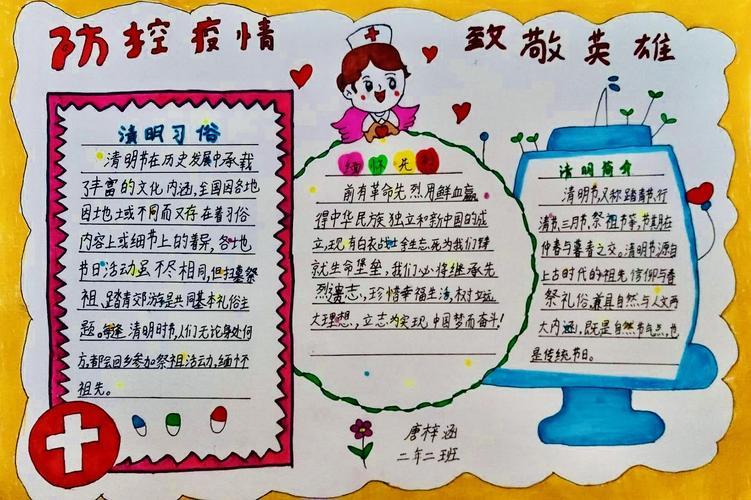 防控疫情 致敬英雄
清明习俗
清明节在历史发展中承载
了丰富的文化内涵,全国因各地
因土地域不同而又存在着习俗
内容上或细节上的差异,各地
节日活动虽不尽相同,但扫墓祭
祖、踏青郊游是共同基本礼俗主
题。每逢清明时节,人们无论身处何
方,都会回乡参加祭祖活动,缅怀
祖先。
缅怀先烈
前有革命先烈用鲜血赢
得中华民族独立和新中国的成
立,现有白衣战士舍生忘死为我们铸
就生命堡垒,我们必将继承先
烈遗志,珍惜幸福生活,树立远
大理想,立志为实现中国梦而奋斗!
清明简介
清明节,又称踏青节、行
清节、三月节、祭祖节等,节期在
仲春与暮春之交。清明节源自
上古时代的祖先信仰与春
祭礼俗,兼具自然与人文两
大内涵,既是自然节气点,也
是传统节日。
唐梓涵
二年二班